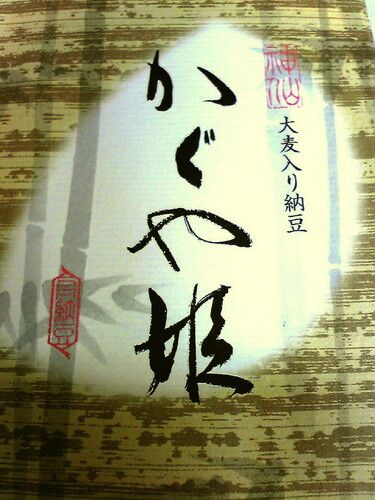 神仙
大麦入り納豆
かぐや姫